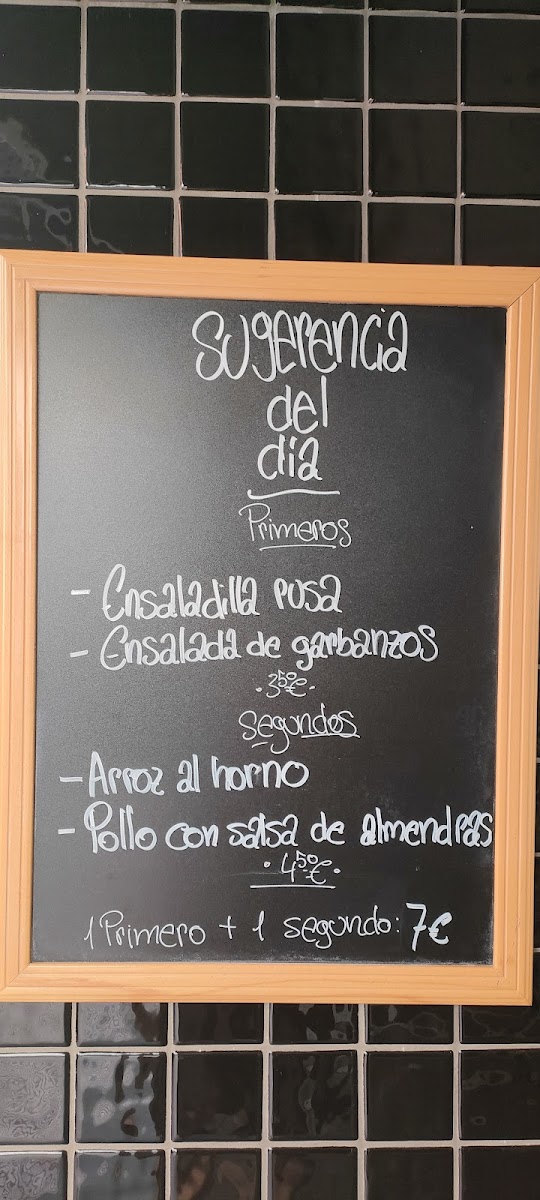 Sugerencia
del
dia
Primeros
- Ensaladilla rusa
- Ensalada de garbanzos
· 350€ ·
Segundos
- Arroz al horno
- Pollo con salsa de almendras
· 450€ ·
1 Primero + 1 segundo: 7€